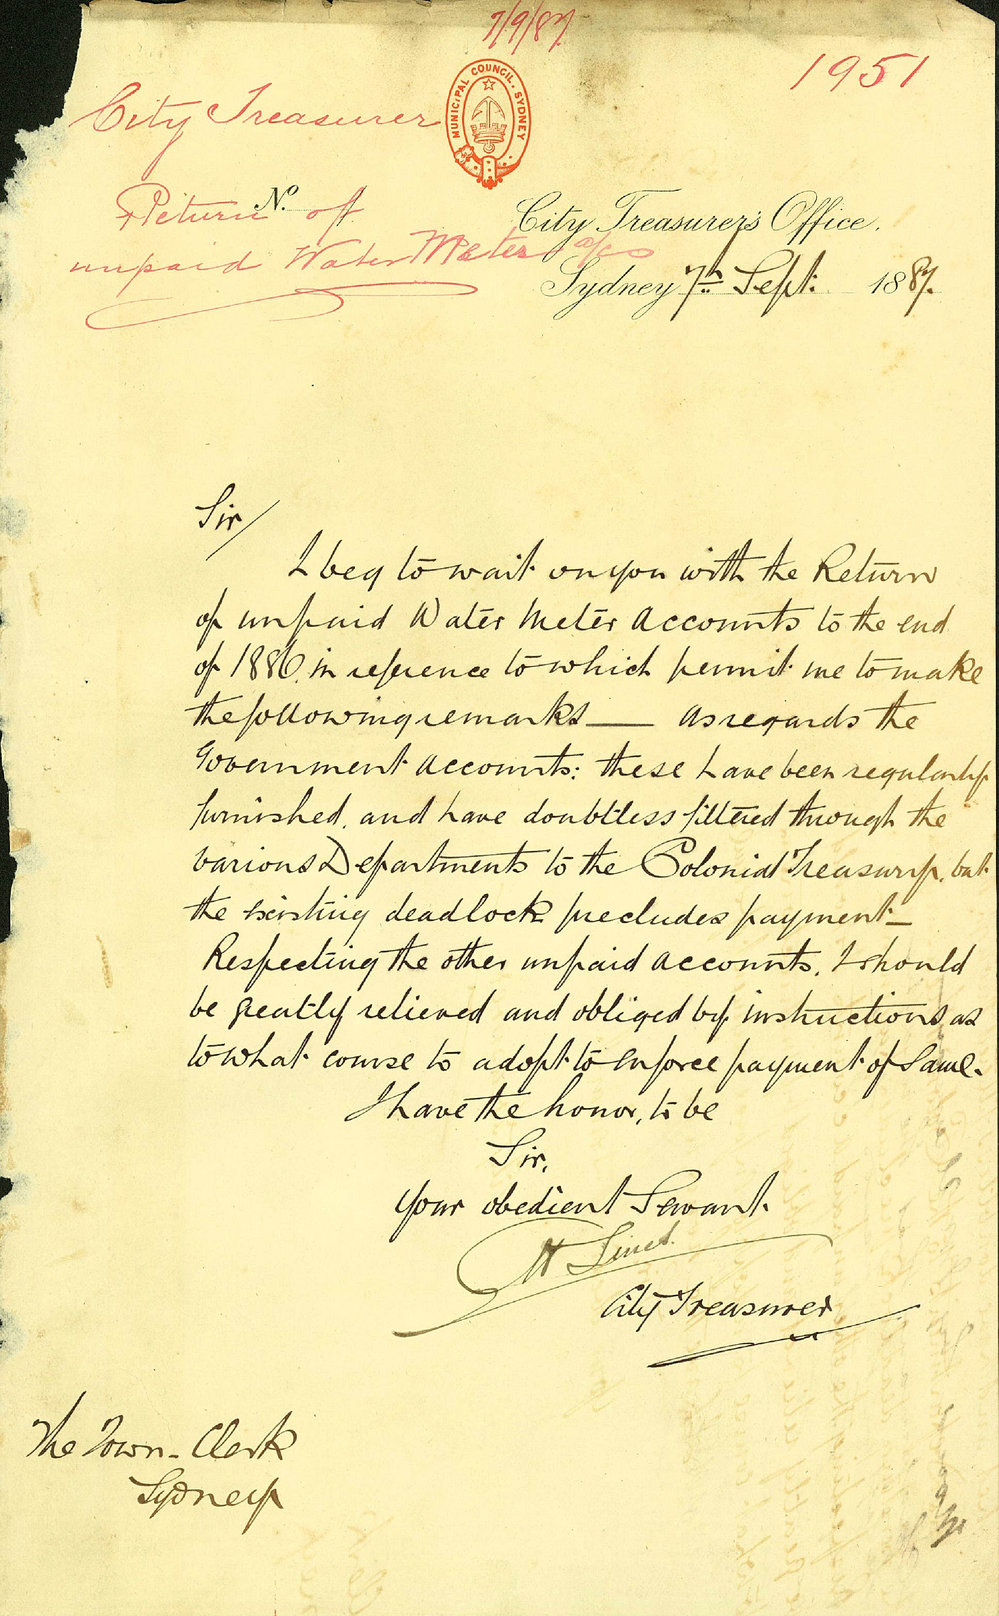 7/9/87
1951
MUNICIPAL COUNCIL. SYDNEY
City Treasurer
Return of
unpaid Water Meter a/cs
No.
City Treasurer's Office.
Sydney 7th Sept. 1887.
Sir/
I beg to wait on you with the Return
of unpaid Water Meter Accounts to the end
of 1886, in reference to which permit me to make
the following remarks — As regards the
Government Accounts: these have been regularly
furnished, and have doubtless filtered through the
various Departments to the Colonial Treasury, but
the existing deadlock precludes payment —
Respecting the other unpaid Accounts, I should
be greatly relieved and obliged by instructions as
to what course to adopt to enforce payment of same.
I have the honor, to be
Sir,
Your obedient Servant.
City Treasurer
The Town-Clerk
Sydney